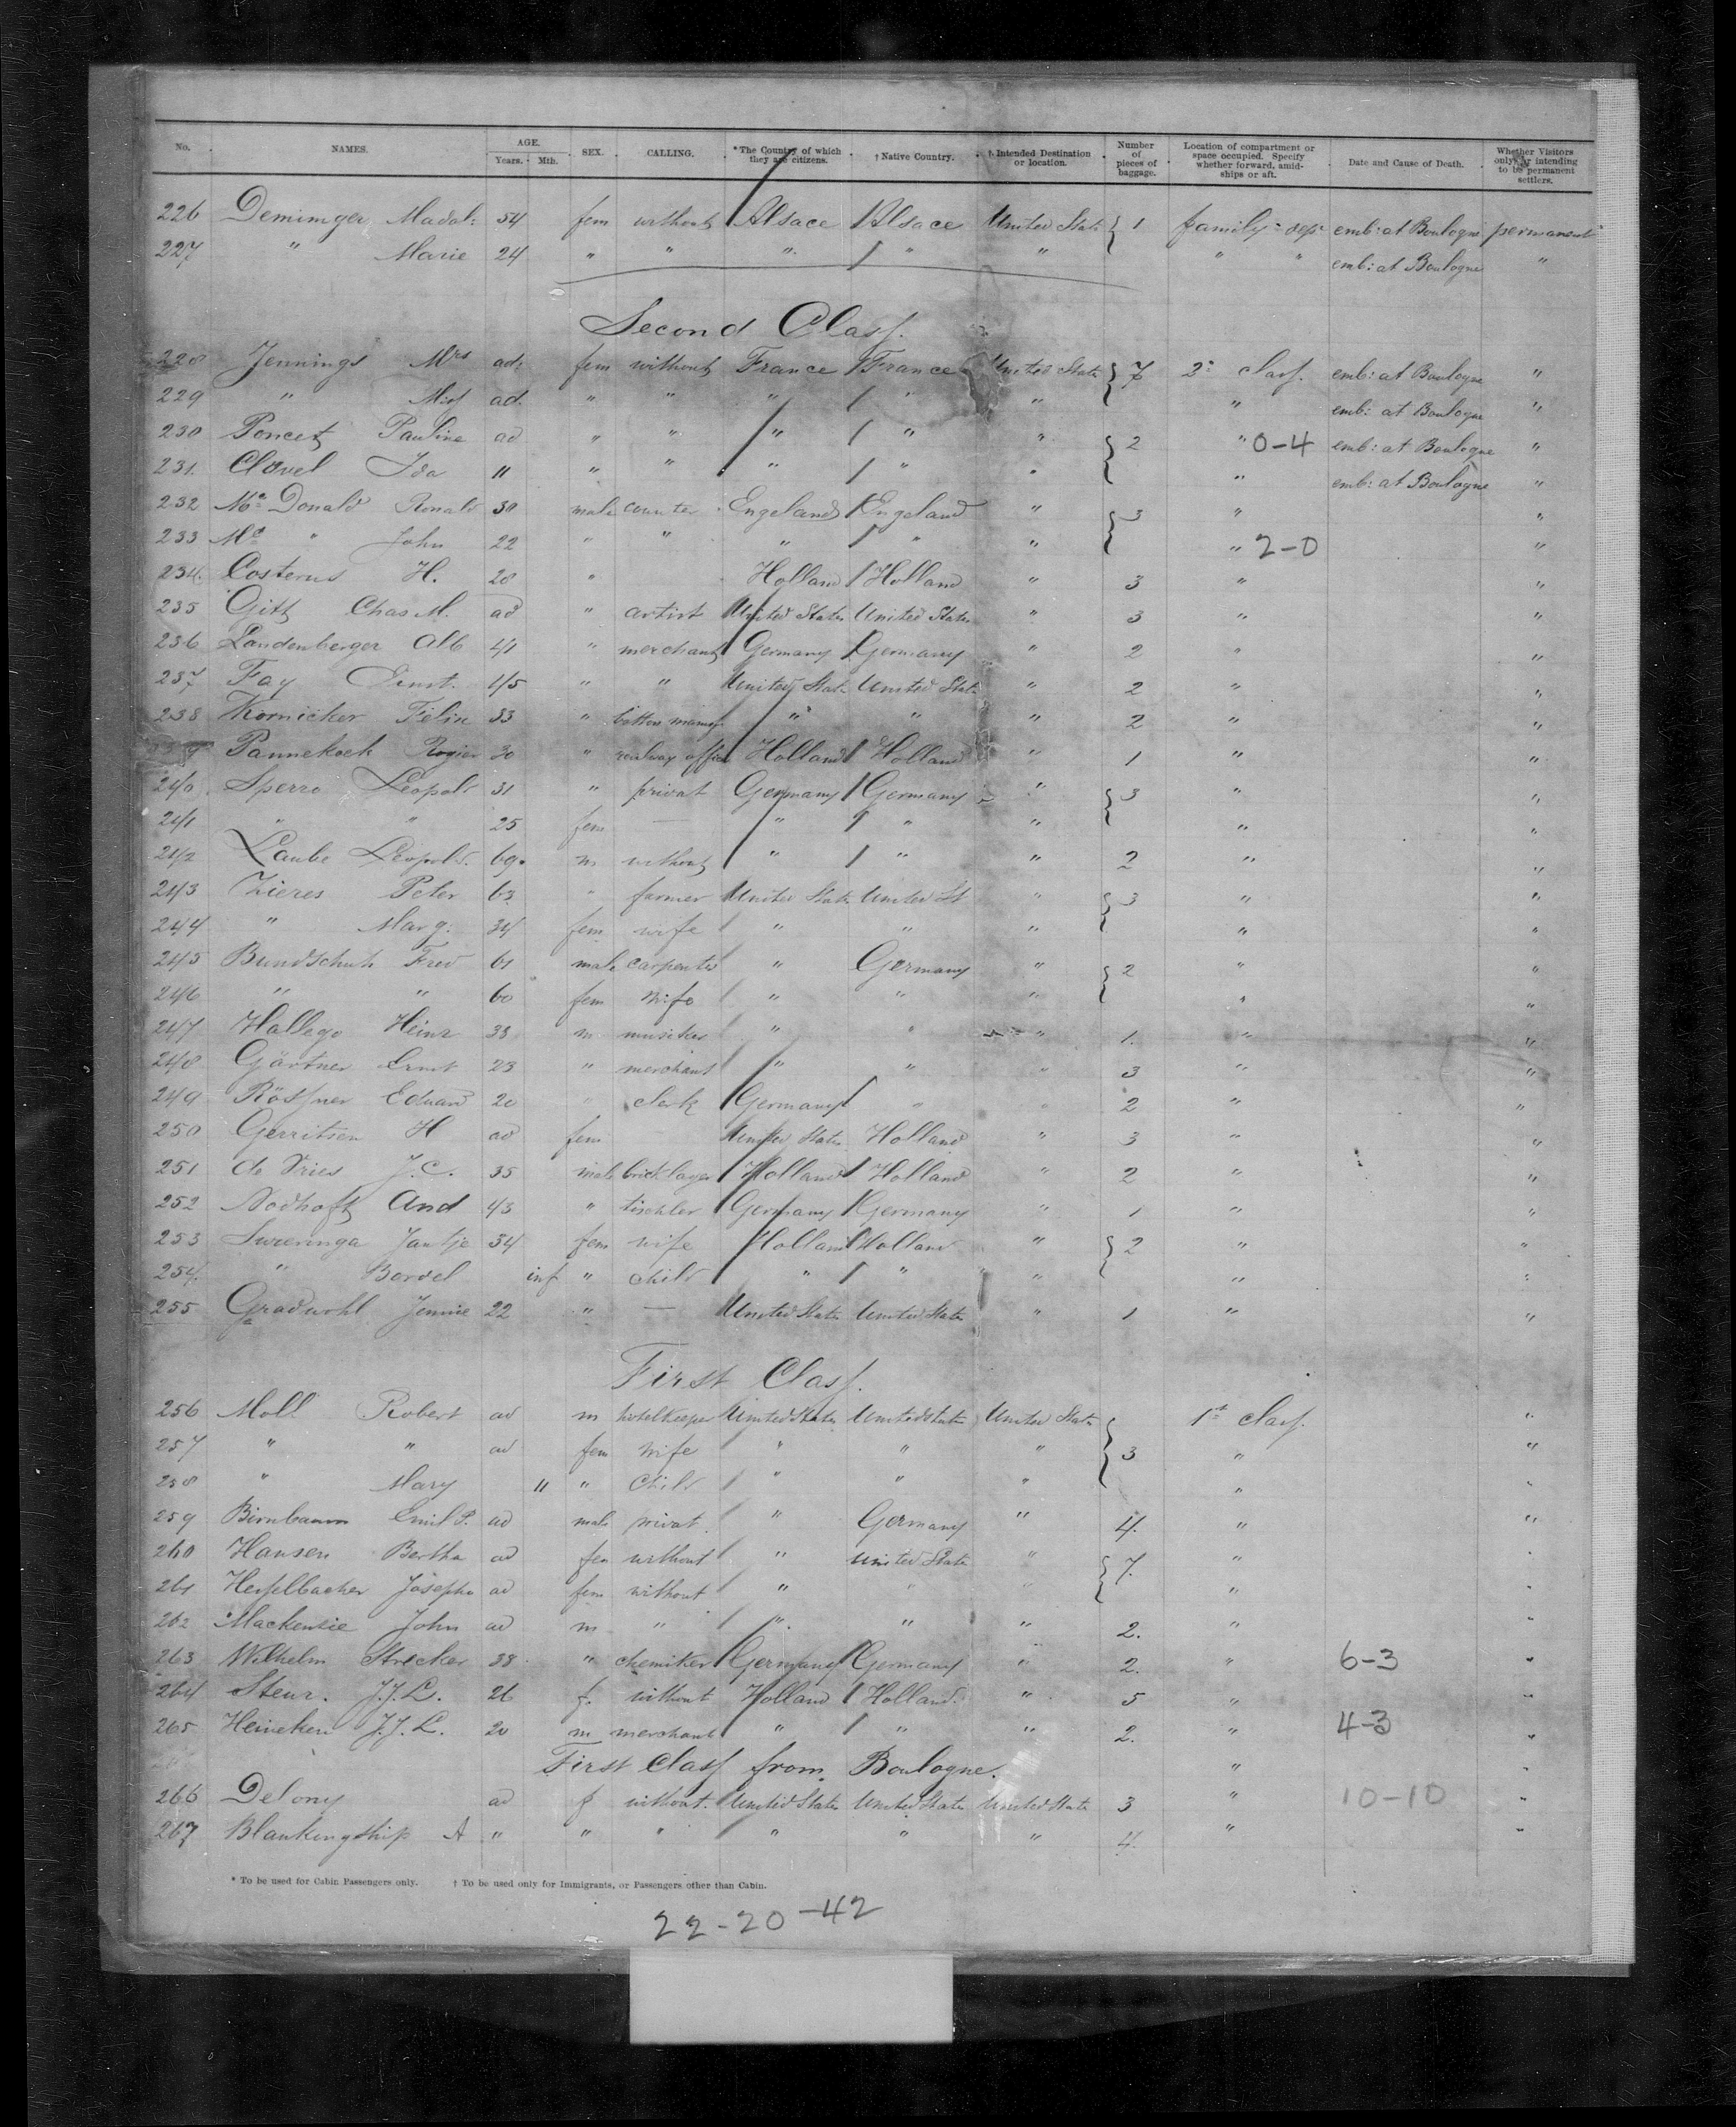 No. NAMES. AGE. Years. Mth. SEX. CALLING. *The Country of which they are citizens. † Native Country. † Intended Destination or location. Number of pieces of baggage. Location of compartment or space occupied. Specify whether forward, amidships or aft. Date and Cause of Death. Whether Visitors only or intending to be permanent settlers.
226 Deminger Madal: 54 fem without Alsace Alsace United State 1 family dep: emb: at Boulogne permanent
227 " Marie 24 " " " " " " " emb: at Boulogne "
Second Class.
228 Jennings Mrs ad: fem without France France United State 7 2d class. emb: at Boulogne "
229 " Miss ad. " " " " " " emb: at Boulogne "
230 Poncet Pauline ad " " " " " 2 " 0-4 emb: at Boulogne "
231. Clavel Ida 11 " " " " " " emb: at Boulogne "
232 Mc Donald Ronald 30 male counter Engeland Engeland " 3 " "
233 Mc " John 22 " " " " " " 2-0 "
234. Costerus H. 28 " Holland Holland " 3 " "
235 Gitt Chas M. ad " artist United States United States " 3 " "
236 Landenberger Alb 41 " merchant Germany Germany " 2 " "
237 Fay Ernst. 45 " " United State United State " 2 " "
238 Kornicker Felix 33 " " " " 2 " "
239 Pannekoek Rogier 30 " railway office Holland Holland " 1 " "
240 Sperro Leopold 31 " privat Germany Germany " 3 " "
241 " " 25 fem — " " " " "
242 Laube Leopold. 69. m without " " " 2 " "
243 Zieres Peter 63 " farmer United State United St " 3 " "
244 " Marg. 34 fem wife " " " " "
245 Bundschuh Fred 61 male carpenter " Germany " 2 " "
246 " " 60 fem wife " " " " "
247 Hallego Heinr 33 m musiker " " " 1. " "
248 Gärtner Ernst 23 " merchant " " " 3 " "
249 Rössner Eduard 20 " clerk Germany " " 2 " "
250 Gerritsen H ad fem United States Holland " 3 " "
251 de Vries J.C. 35 male bricklayer Holland Holland " 2 " "
252 Nodhoft And 43 " tischler Germany Germany " 1 " "
253 Swieringa Jantje 34 fem wife Holland Holland " 2 " "
254. " Berdel inf " child " " " " "
255 Gradwohl Jennie 22 " — United State United State " 1 " "
First Class.
256 Moll Robert ad m hotelkeeper United States United states United State 1st class. "
257 " " ad fem wife " " " 3 " "
258 " Mary 11 " child " " " " "
259 Birnbaum Emil P. ad male privat. " Germany " 4. " "
260 Hansen Bertha ad fem without " United State " 7. " "
261 Hesselbacher Josepha ad fem without " " " " "
262 Mackensie John ad m " " " " 2. " "
263 Wilhelm Strecker 38 " chemiker Germany Germany " 2. " 6-3 "
264 Steur. J.J.L. 26 f. without Holland Holland. " 5 " "
265 Heineken J.J.L. 20 m merchant " " " 2. " 4-3 "
First Class from Boulogne. " "
266 Delony ad f without. United States United States United State 3 " 10-10 "
267 Blankingship A " " " " " " 4. " "
* To be used for Cabin Passengers only. † To be used only for Immigrants, or Passengers other than Cabin.
22-20-42